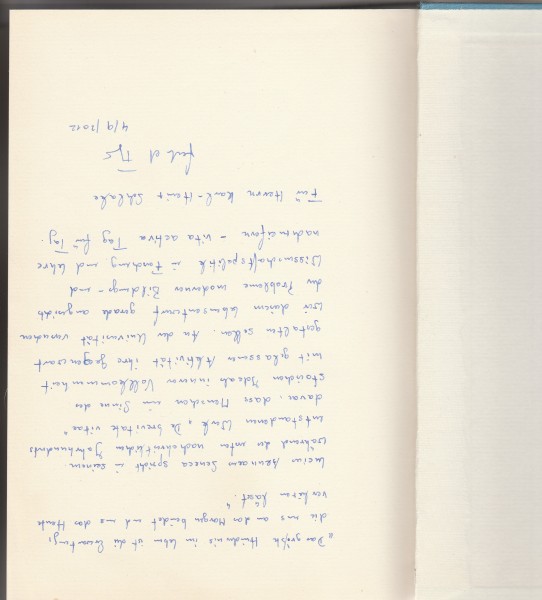 „Das größte Hindernis im Leben ist die Erwartung,
die uns an das Morgen bindet und uns das Heute
verlieren lässt."
Lucius Annaeus Seneca spricht in seinem
während der ersten nachchristlichen Jahrhunderts
entstandenen Werk „De brevitate vitae"
davon, dass Menschen im Sinne des
stoischen Ideals innerer Vollkommenheit
mit gelassener Aktivität ihre Gegenwart
gestalten sollen. An der Universität versuchen
wir diesem Lebensentwurf gerade angesichts
der Probleme moderner Bildungs- und
Wissenschaftspolitik in Forschung und Lehre
nachzueifern – vita activa Tag für Tag.
Für Herrn Karl-Heinz Schlake
4/9/2012